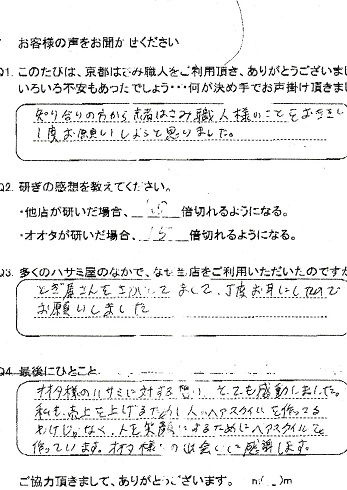 お客様の声をお聞かせください
Q1. このたびは、京都はさみ職人をご利用頂き、ありがとうございまし
いろいろ不安もあったでしょう･･･何が決め手でお声掛け頂きまし
知り合いの方から京都はさみ職人様のことをお
1度お願いしようと思いました。
Q2. 研ぎの感想を教えてください。
・他店が研いだ場合、 倍切れるようになる。
・オオタが研いだ場合、15倍切れるようになる。
Q3. 多くのハサミ屋のなかで、なぜ当店をご利用いただいたのですか
とぎ屋さんをさがして まして、丁度お耳にしたので
お願いしました
Q4. 最後にひとこと
オオタ様のハサミに対する思い とても感動しました。
私も売上を上げるため 人のヘアスタイルを作ってる
わけじゃなく、人を笑顔にするためにヘアスタイルを
作っています。オオタ様との出会いに感謝します。
ご協力頂きまして、ありがとうございます。 m(_ _)m